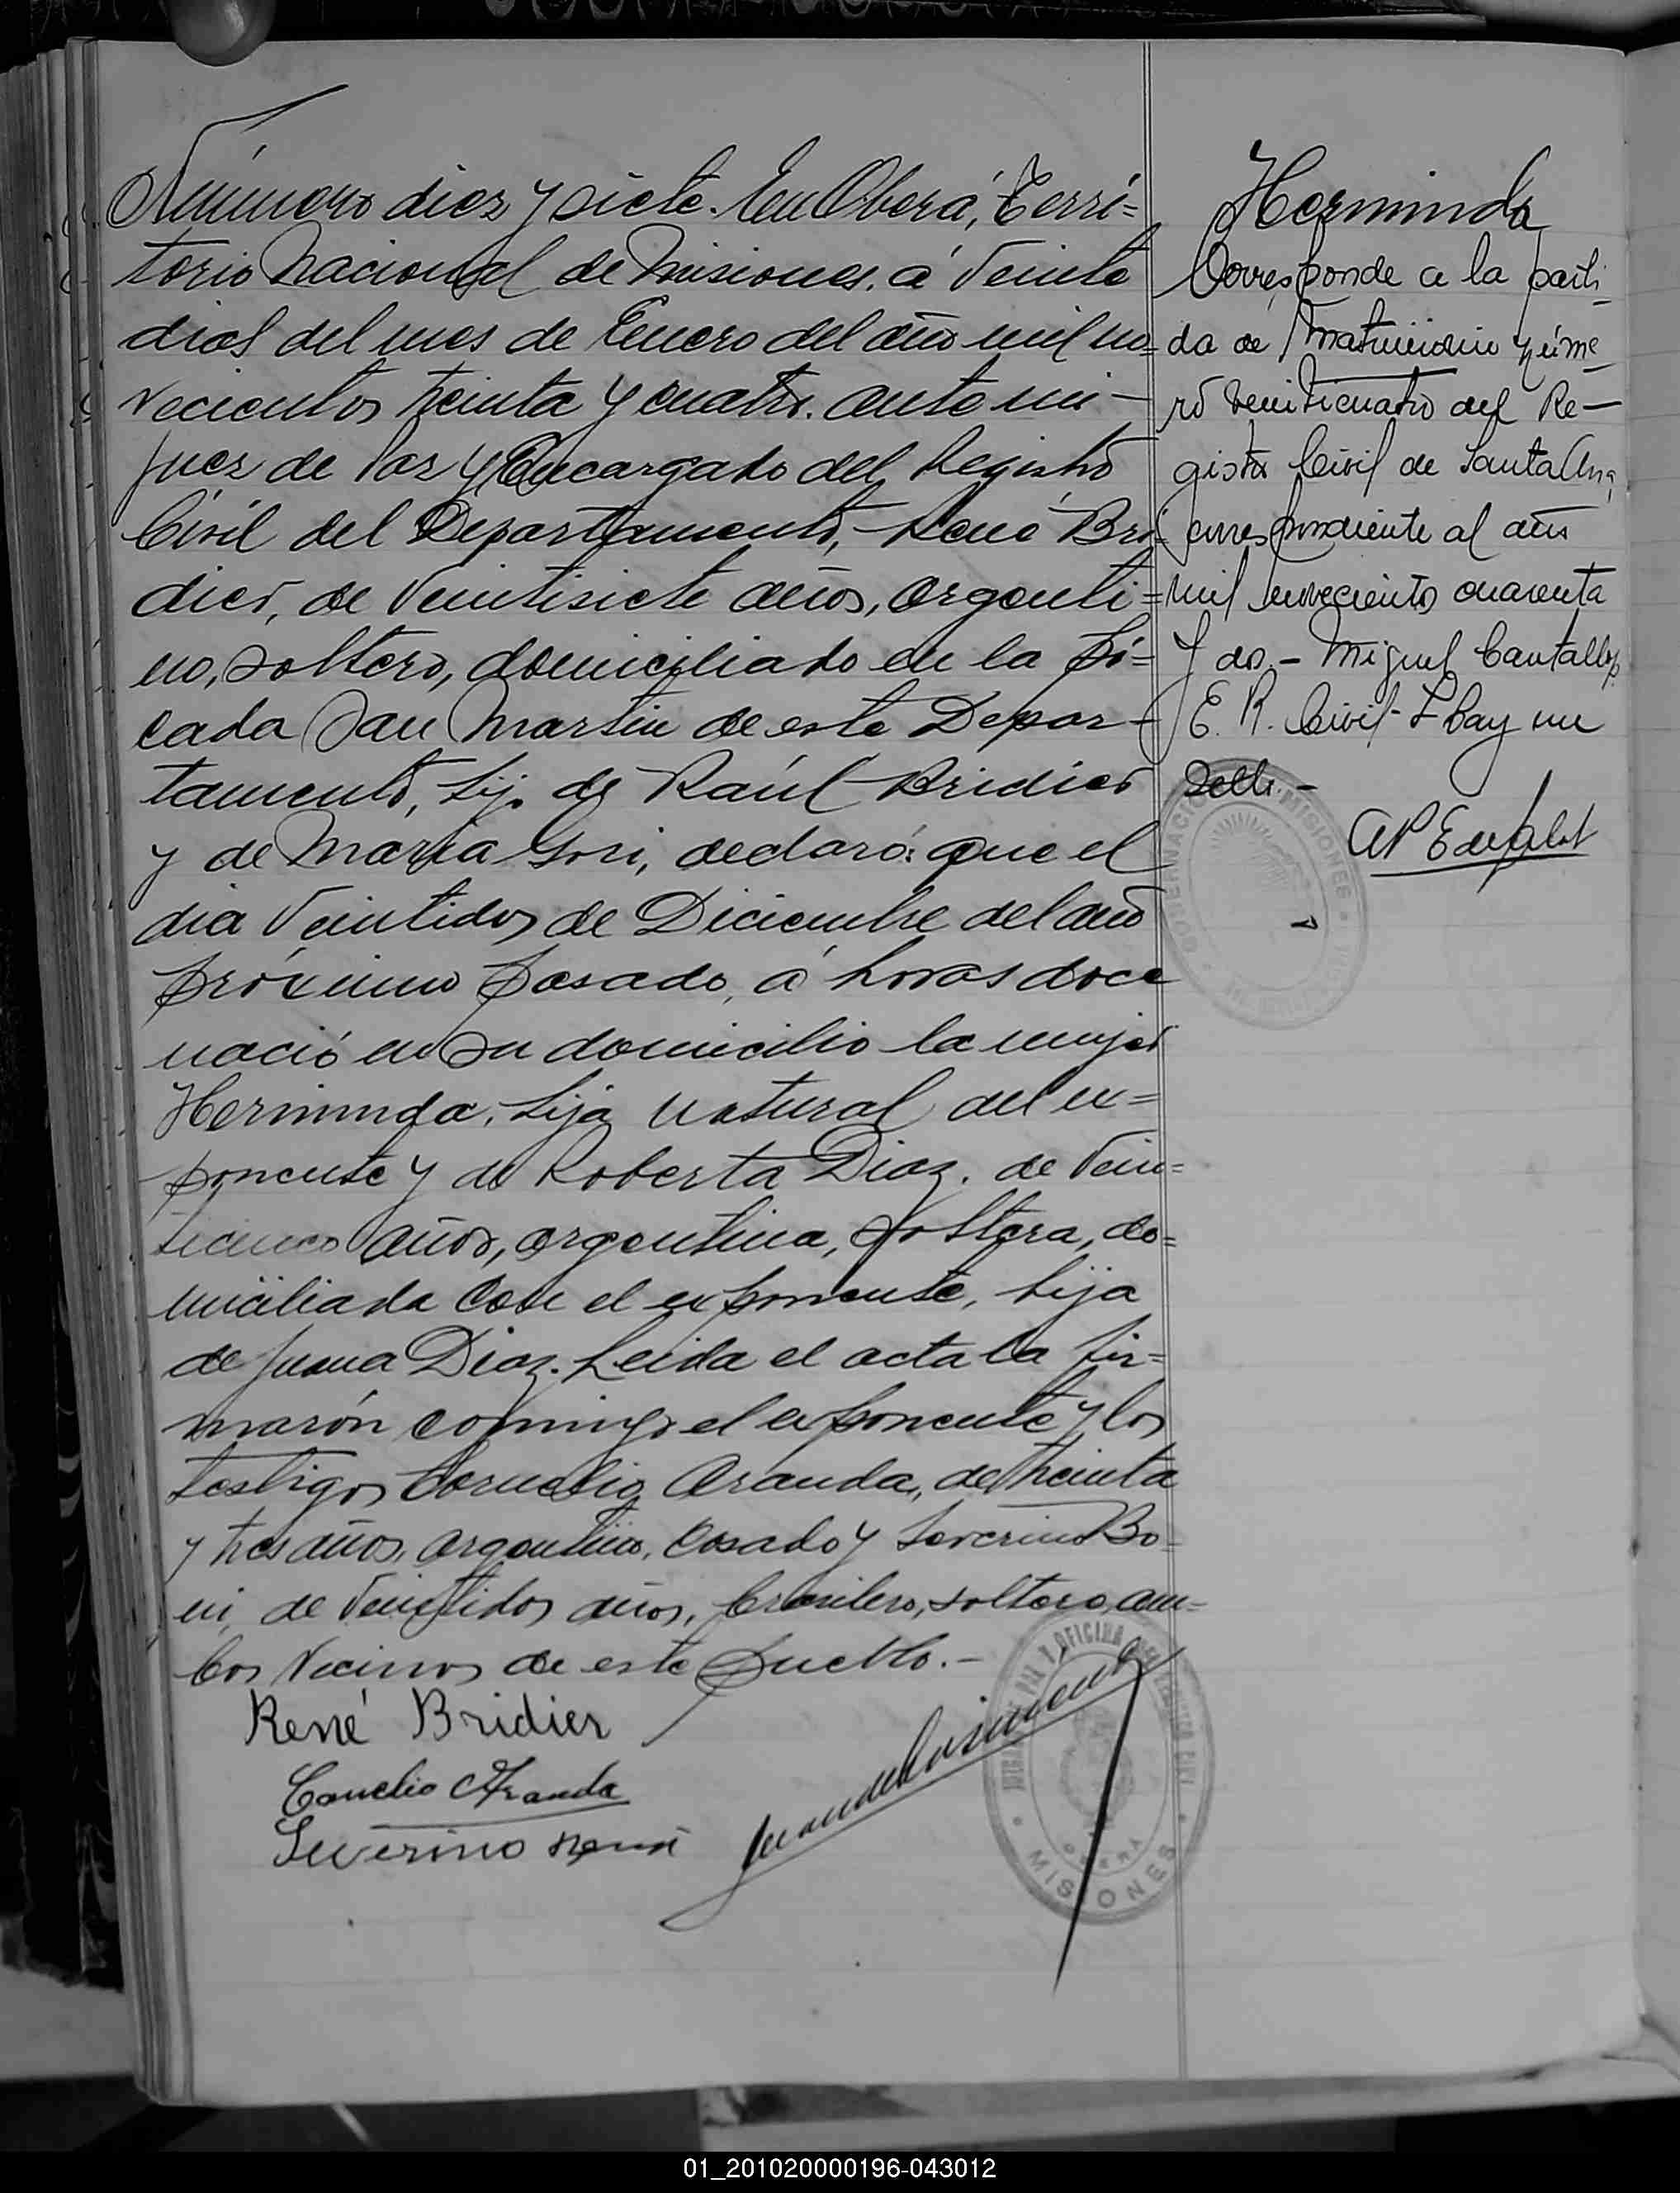 Número diez y siete. En Oberá, Terri=
torio Nacional de Misiones, á veinte
dias del mes de Enero del año mil no=
vecientos treinta y cuatro. ante mi —
Juez de Paz y Encargado del Registro
Civil del Departamento, - René Bri=
dier, de veintisiete años, argenti=
no, soltero, domiciliado en la pi=
cada San Martin de este Depar-
tamento, hijo de Raúl Bridier
y de María Gori, declaró: que el
dia veintidos de Diciembre del año
próximo pasado, á horas doce
nació en su domicilio la mujer
Herminda, hija natural del ex=
ponente y de Roberta Diaz, de vein=
ticinco años, argentina, soltera, do=
miciliada con el exponente, hija
de Juana Diaz. Leida el acta la fir=
marón conmigo el exponente y los
testigos Cornelio Aranda, de treinta
y tres años, argentino, casado y Severino Bo=
ni, de veintidos años, brasilero, soltero, am=
bos vecinos de este pueblo.-
René Bridier
Cornelio Aranda
Severino
Herminda
Corresponde a la parti-
da de Matrimonio núme-
ro veinticuatro del Re-
gistro Civil de Santa Ana
correspondiente al año
mil novecientos cuarenta
y dos.- Miguel Cantallops
E. R. Civil- Hay un
sello.-
GOBERNACION MISIONES
JUZGADO DE PAZ Y OFICINA DEL REGISTRO CIVIL
OBERA
MISIONES
01_201020000196-043012